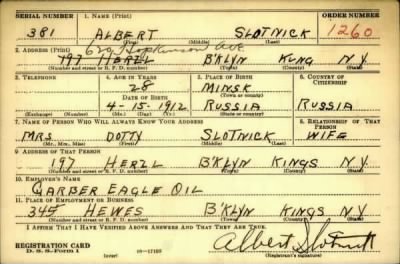 SERIAL NUMBER 1. NAME (Print) ORDER NUMBER
381 ALBERT SLOTNICK 1260
(First) (Middle) (Last)
629 Hopkinson Ave
2. ADDRESS (Print)
197 HERZL B'KLYN KUNG N.Y.
(Number and street or R. F. D. number) (Town) (County) (State)
3. TELEPHONE 4. AGE IN YEARS 5. PLACE OF BIRTH 6. COUNTRY OF CITIZENSHIP
28 MINSK
DATE OF BIRTH (Town or county)
4-15-1912 RUSSIA RUSSIA
(Exchange) (Number) (Mo.) (Day) (Yr.) (State or country)
7. NAME OF PERSON WHO WILL ALWAYS KNOW YOUR ADDRESS 8. RELATIONSHIP OF THAT PERSON
MRS. DOTTY SLOTNICK WIFE
(Mr., Mrs., Miss) (First) (Middle) (Last)
9. ADDRESS OF THAT PERSON
197 HERZL B'KLYN KINGS N.Y.
(Number and street or R. F. D. number) (Town) (County) (State)
10. EMPLOYER'S NAME
GARBER EAGLE OIL
11. PLACE OF EMPLOYMENT OR BUSINESS
345 HEWES B'KLYN KINGS N.Y.
(Number and street or R. F. D. number) (Town) (County) (State)
I AFFIRM THAT I HAVE VERIFIED ABOVE ANSWERS AND THAT THEY ARE TRUE.
REGISTRATION CARD Albert Slotnick
D. S. S. Form 1 (over) 16-17105 (Registrant's signature)